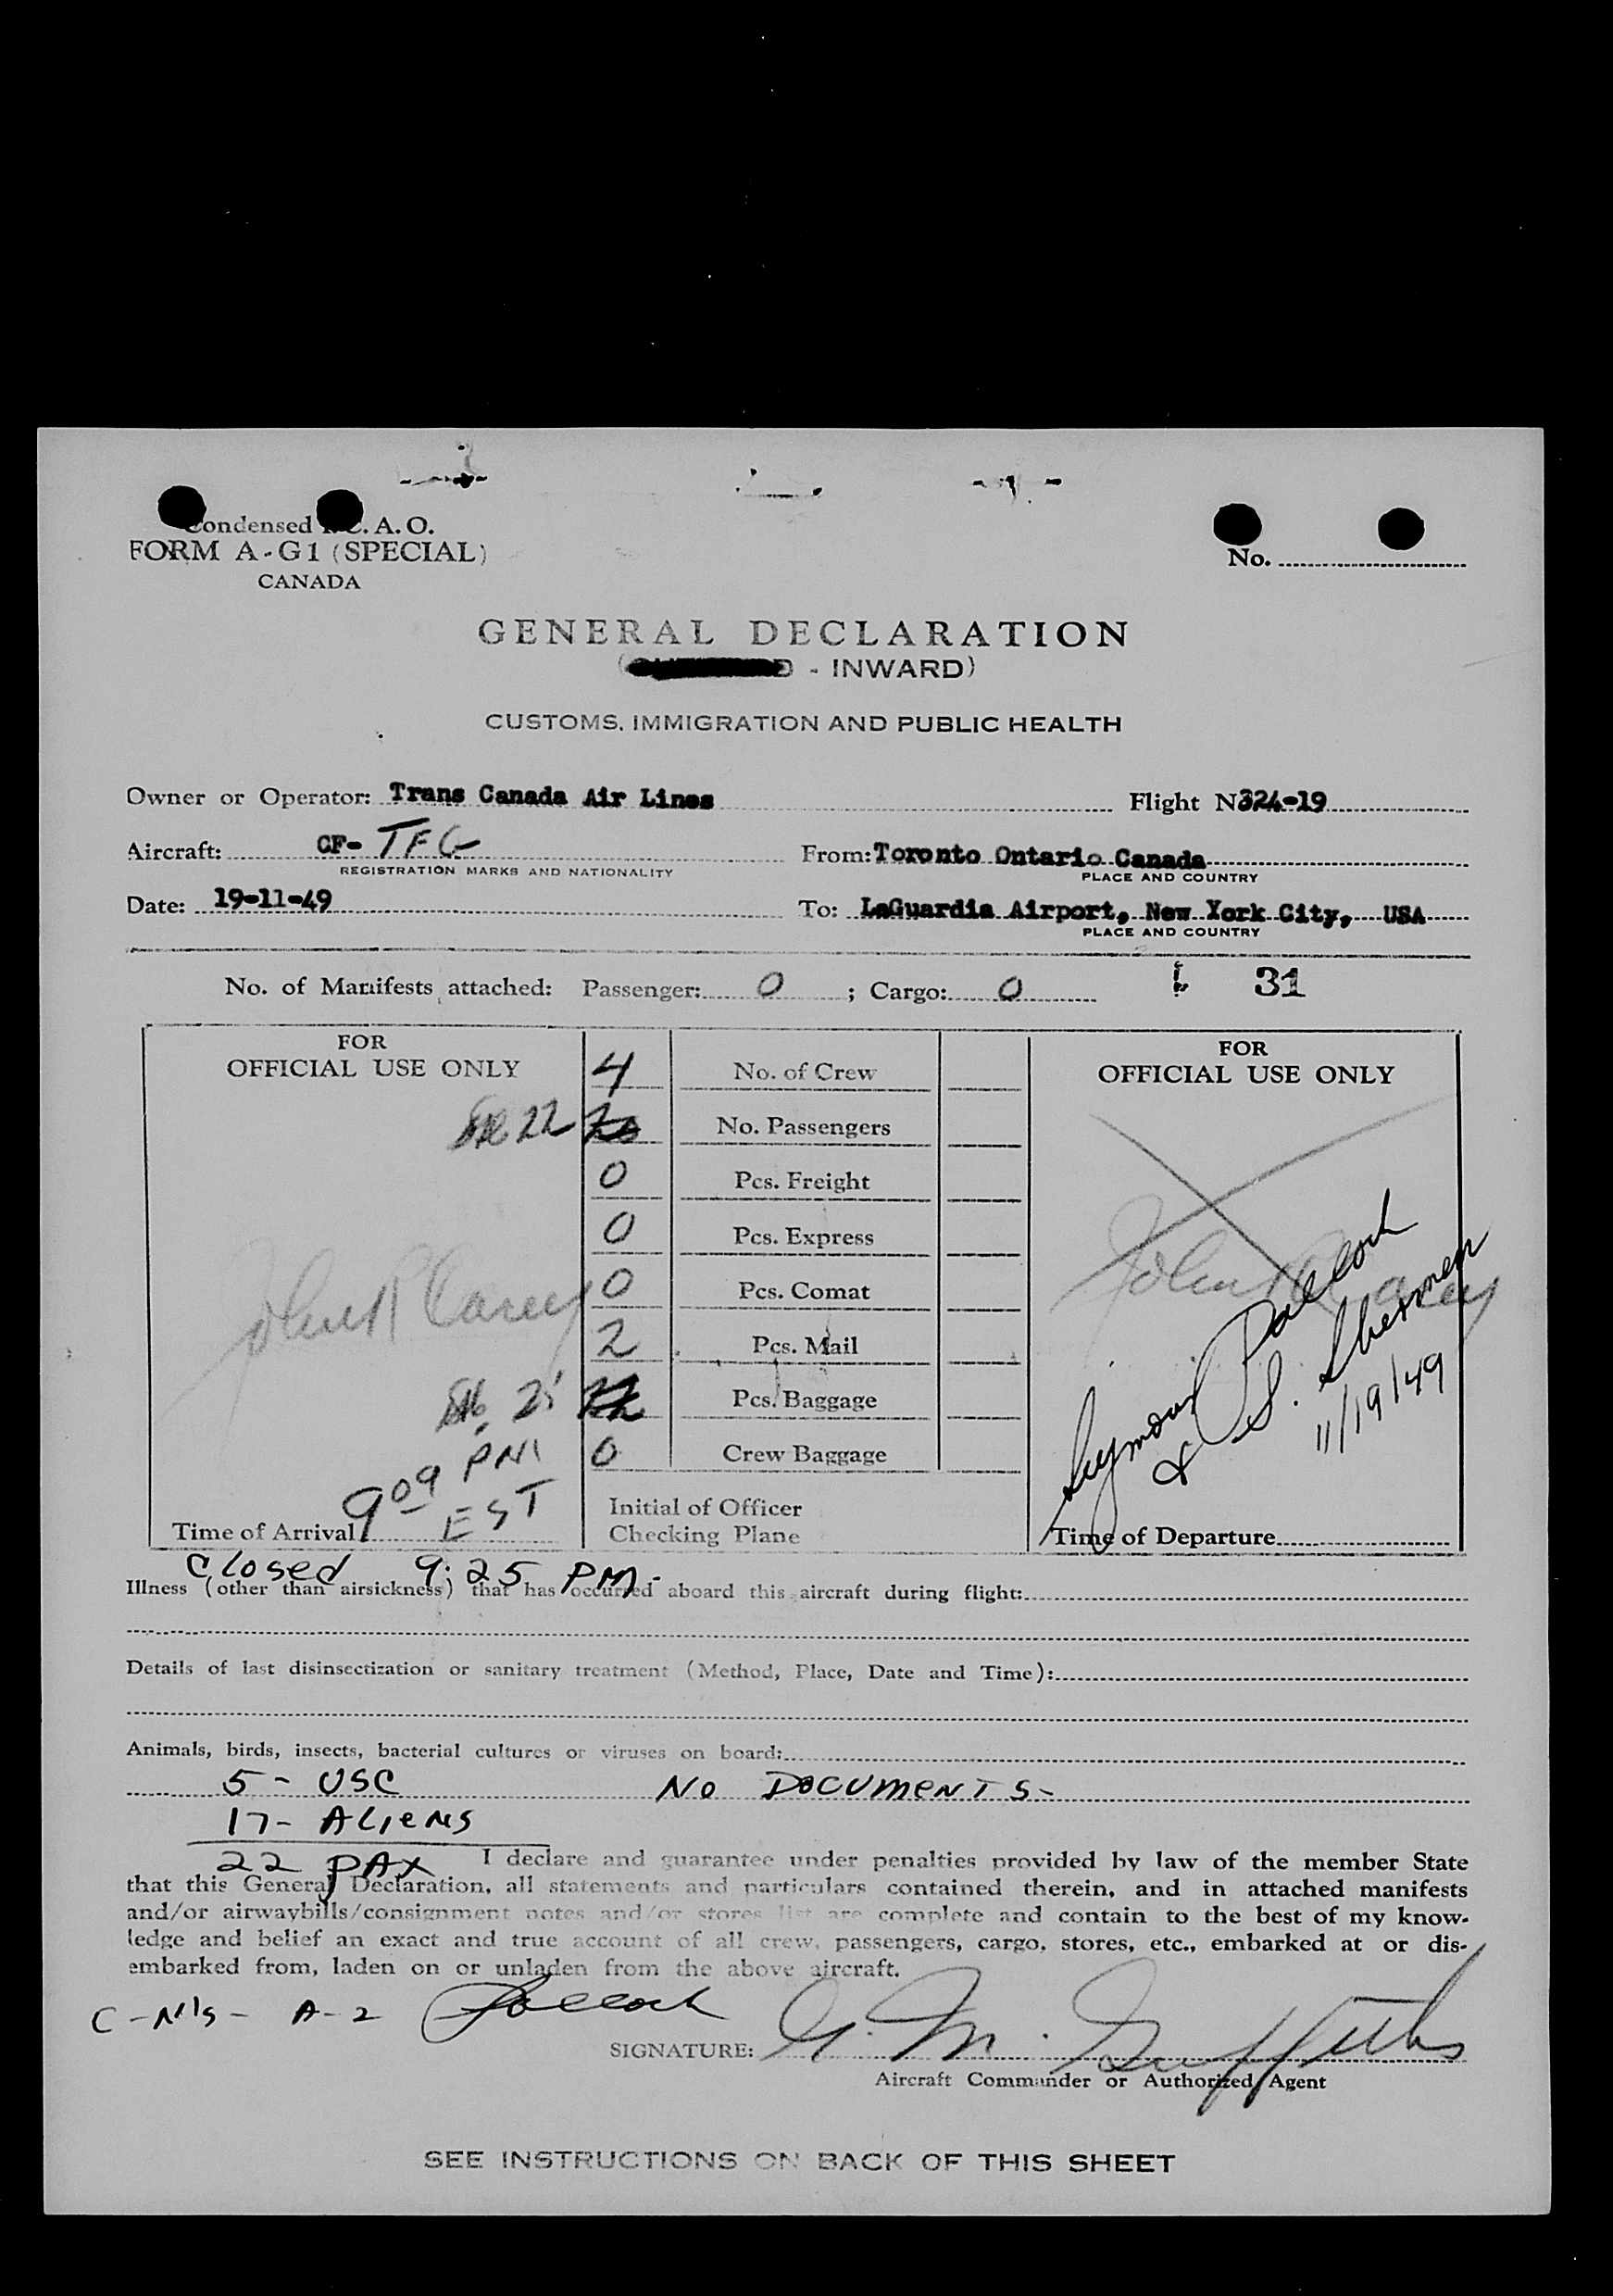 Condensed I.C.A.O.
FORM A-G1 (SPECIAL)
CANADA
No.
GENERAL DECLARATION
- INWARD)
CUSTOMS, IMMIGRATION AND PUBLIC HEALTH
Owner or Operator: Trans Canada Air Lines Flight N324-19
Aircraft: CF- TFG From: Toronto Ontario Canada
REGISTRATION MARKS AND NATIONALITY PLACE AND COUNTRY
Date: 19-11-49 To: LaGuardia Airport, New York City, USA
PLACE AND COUNTRY
No. of Manifests attached: Passenger: 0 ; Cargo: 0 31
FOR
OFFICIAL USE ONLY
4 No. of Crew
22 No. Passengers
0 Pcs. Freight
0 Pcs. Express
0 Pcs. Comat
2 Pcs. Mail
Pcs. Baggage
0 Crew Baggage
John R Carey
9 09 PM
EST
Time of Arrival
Initial of Officer
Checking Plane
FOR
OFFICIAL USE ONLY
John R Carey
Seymour Pollock
& S. Sherman
11/19/49
Time of Departure
Closed 9:25 PM-
Illness (other than airsickness) that has occurred aboard this aircraft during flight:
Details of last disinsectization or sanitary treatment (Method, Place, Date and Time):
Animals, birds, insects, bacterial cultures or viruses on board:
5 - USC NO DOCUMENTS-
17- ALIENS
22 PAX I declare and guarantee under penalties provided by law of the member State
that this General Declaration, all statements and particulars contained therein, and in attached manifests
and/or airwaybills/consignment notes and/or stores list are complete and contain to the best of my know-
ledge and belief an exact and true account of all crew, passengers, cargo, stores, etc., embarked at or dis-
embarked from, laden on or unladen from the above aircraft.
A-2 Pollock
SIGNATURE: G. M. Griffiths
Aircraft Commander or Authorized Agent
SEE INSTRUCTIONS ON BACK OF THIS SHEET